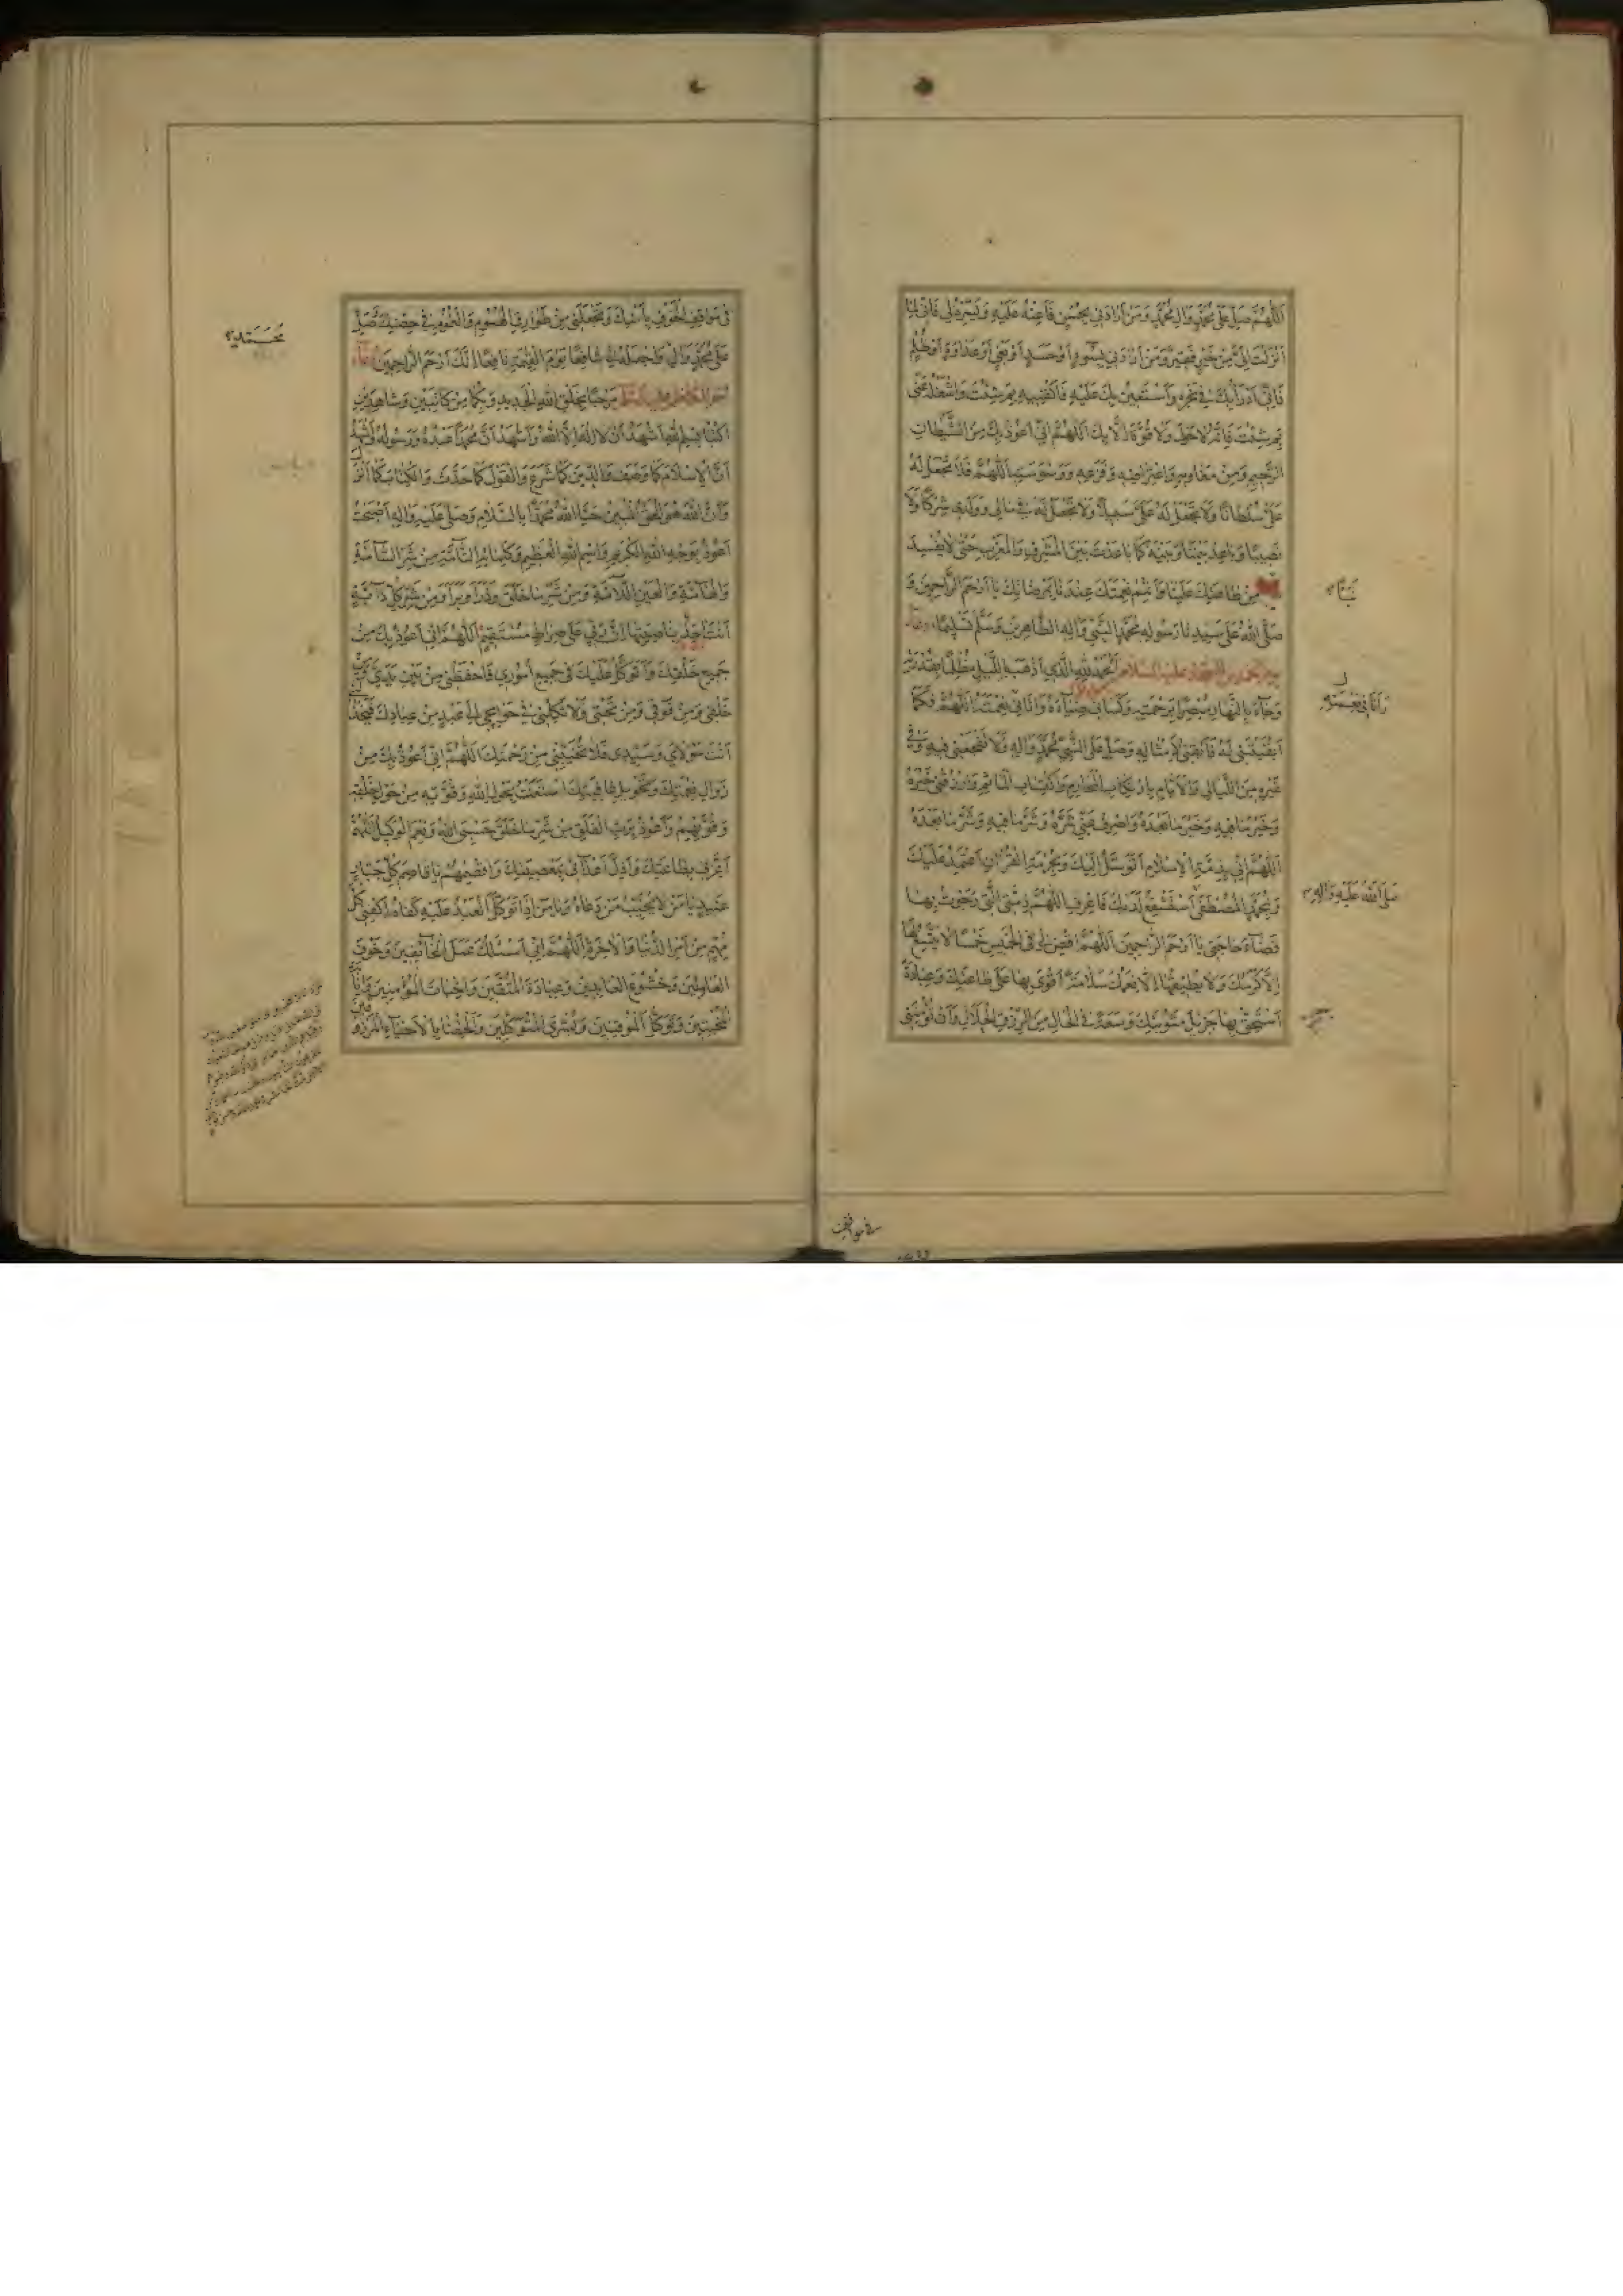 اَللّهُمَّ صَلِّ عَلى مُحَمَّدٍ وَالِ مُحَمَّدٍ وَمَنْ اَرادَني بِحُسْنٍ فَاَعِنْهُ عَلَيْهِ وَيَسِّرْهُ لي فَاِنّي لِما
اَنْزَلْتَ اِلَيَّ مِنْ خَيْرٍ فَقيرٌ وَمَنْ اَرادَني بِسُوءٍ اَوْ حَسَدٍ اَوْ بَغْيٍ اَوْ عَداوَةٍ اَوْ ظُلْمٍ
فَاِنّي اَدْرَأُ بِكَ في نَحْرِهِ وَاَسْتَعينُ بِكَ عَلَيْهِ فَاكْفِنيهِ بِمَ شِئْتَ وَاشْغَلْهُ عَنّي
بِمَ شِئْتَ فَاِنَّهُ لا حَوْلَ وَلا قُوَّةَ اِلّا بِكَ اَللّهُمَّ اِنّي اَعُوذُ بِكَ مِنَ الشَّيْطانِ
الرَّجيمِ وَمِنْ مَغاويهِ وَاعْتِراضِهِ وَفَزَعِهِ وَوَسْوَسَتِهِ اَللّهُمَّ فَلا تَجْعَلْ لَهُ
عَلَيَّ سُلْطانًا وَلا تَجْعَلْ لَهُ عَلَيَّ سَبيلًا وَلا تَجْعَلْ لَهُ في مالي وَوَلَدي شِرْكًا وَلا
نَصيبًا وَباعِدْ بَيْنَنا وَبَيْنَهُ كَما باعَدْتَ بَيْنَ الْمَشْرِقِ وَالْمَغْرِبِ حَتّى لا يُفْسِدَ
مِنْ طاعَتِكَ عَلَيْنا وَاَتْمِمْ نِعْمَتَكَ عِنْدَنا بِمَرْضاتِكَ يا اَرْحَمَ الرّاحِمينَ وَ
صَلَّى اللهُ عَلى سَيِّدِنا رَسُولِهِ مُحَمَّدٍ النَّبِيِّ وَالِهِ الطّاهِرينَ وَسَلَّمَ تَسْليمًا دعاء
عليه السلام اَلْحَمْدُ لِلّهِ الَّذي اَذْهَبَ اللَّيْلَ مُظْلِمًا بِقُدْرَتِهِ
وَجاءَ بِالنَّهارِ مُبْصِرًا بِرَحْمَتِهِ وَكَساني ضِياءَهُ وَاَتاني نِعْمَتَهُ اَللّهُمَّ فَكَما
اَبْقَيْتَني لَهُ فَاَبْقِني لِاَمْثالِهِ وَصَلِّ عَلَى النَّبِيِّ مُحَمَّدٍ وَالِهِ وَلا تَفْجَعْني فيهِ وَفي
غَيْرِهِ مِنَ اللَّيالي وَالْاَيّامِ بِارْتِكابِ الْمَحارِمِ وَاكْتِسابِ الْمَاثِمِ وَارْزُقْني خَيْرَهُ
وَخَيْرَ ما فيهِ وَخَيْرَ ما بَعْدَهُ وَاصْرِفْ عَنّي شَرَّهُ وَشَرَّ ما فيهِ وَشَرَّ ما بَعْدَهُ
اَللّهُمَّ اِنّي بِذِمَّةِ الْاِسْلامِ اَتَوَسَّلُ اِلَيْكَ وَبِحُرْمَةِ الْقُرْانِ اَعْتَمِدُ عَلَيْكَ
وَبِمُحَمَّدٍ الْمُصْطَفى اَسْتَشْفِعُ لَدَيْكَ فَاعْرِفِ اللّهُمَّ ذِمَّتِيَ الَّتي رَجَوْتُ بِها
قَضاءَ حاجَتي يا اَرْحَمَ الرّاحِمينَ اَللّهُمَّ اقْضِ لي فِي الْخَميسِ خَمْسًا لا يَتَّسِعُ لَها
اِلّا كَرَمُكَ وَلا يُطيقُها اِلّا نِعَمُكَ سَلامَةً اَقْوى بِها عَلى طاعَتِكَ وَعِبادَةً
اَسْتَحِقُّ بِها جَزيلَ مَثُوبَتِكَ وَسَعَةً فِي الْحالِ مِنَ الرِّزْقِ الْحَلالِ وَاَنْ تُؤْمِنَني
صَلَّى اللهُ عَلَيْهِ وَالِهِ
في مَواقِفِ الْخَوْفِ بِاَمْنِكَ وَتَجْعَلَني مِنْ طَوارِقِ الْهُمُومِ وَالْغُمُومِ في حِصْنِكَ وَصَلِّ
عَلى مُحَمَّدٍ وَالِهِ وَاجْعَلْهُ لي شافِعًا يَوْمَ الْقِيمَةِ نافِعًا اِنَّكَ اَرْحَمُ الرّاحِمينَ دعاء
مَرْحَبًا بِخَلْقِ اللهِ الْجَديدِ وَبِكُما مِنْ كاتِبَيْنِ وَشاهِدَيْنِ
اُكْتُبا بِسْمِ اللهِ اَشْهَدُ اَنْ لا اِلهَ اِلَّا اللهُ وَاَشْهَدُ اَنَّ مُحَمَّدًا عَبْدُهُ وَرَسُولُهُ وَاَشْهَدُ
اَنَّ الْاِسْلامَ كَما وَصَفَ وَالدّينَ كَما شَرَعَ وَالْقَوْلَ كَما حَدَّثَ وَالْكِتابَ كَما اَنْزَلَ
وَاَنَّ اللهَ هُوَ الْحَقُّ الْمُبينُ حَيَّا اللهُ مُحَمَّدًا بِالسَّلامِ وَصَلّى عَلَيْهِ وَالِهِ اَصْبَحْتُ
اَعُوذُ بِوَجْهِ اللهِ الْكَريمِ وَاسْمِ اللهِ الْعَظيمِ وَكَلِماتِهِ التّامَّةِ مِنْ شَرِّ السّامَّةِ
وَالْهامَّةِ وَالْعَيْنِ اللّامَّةِ وَمِنْ شَرِّ ما خَلَقَ وَذَرَاَ وَبَرَاَ وَمِنْ شَرِّ كُلِّ دابَّةٍ
اَنْتَ اخِذٌ بِناصِيَتِها اِنَّ رَبّي عَلى صِراطٍ مُسْتَقيمٍ اَللّهُمَّ اِنّي اَعُوذُ بِكَ مِنْ
جَميعِ خَلْقِكَ وَاَتَوَكَّلُ عَلَيْكَ في جَميعِ اُمُوري فَاحْفَظْني مِنْ بَيْنِ يَدَيَّ وَمِنْ
خَلْفي وَمِنْ فَوْقي وَمِنْ تَحْتي وَلا تَكِلْني في حَوائِجي اِلى عَبْدٍ مِنْ عِبادِكَ فَيَخْذُلَني
اَنْتَ مَوْلايَ وَسَيِّدي فَلا تُخَيِّبْني مِنْ رَحْمَتِكَ اَللّهُمَّ اِنّي اَعُوذُ بِكَ مِنْ
زَوالِ نِعْمَتِكَ وَتَحْويلِ عافِيَتِكَ اسْتَعَنْتُ بِحَوْلِ اللهِ وَقُوَّتِهِ مِنْ حَوْلِ خَلْقِهِ
وَقُوَّتِهِمْ وَاَعُوذُ بِرَبِّ الْفَلَقِ مِنْ شَرِّ ما خَلَقَ حَسْبِيَ اللهُ وَنِعْمَ الْوَكيلُ اَللّهُمَّ
اَعِزَّني بِطاعَتِكَ وَاَذِلَّ اَعْدائي بِمَعْصِيَتِكَ وَاقْصِمْهُمْ يا قاصِمَ كُلِّ جَبّارٍ
عَنيدٍ يا مَنْ لا يُخَيِّبُ مَنْ دَعاهُ وَيا مَنْ اِذا تَوَكَّلَ الْعَبْدُ عَلَيْهِ كَفاهُ اكْفِني كُلَّ
مُهِمٍّ مِنْ اَمْرِ الدُّنْيا وَالْاخِرَةِ اَللّهُمَّ اِنّي اَسْئَلُكَ عَمَلَ الْخائِفينَ وَخَوْفَ
الْعامِلينَ وَخُشُوعَ الْعابِدينَ وَعِبادَةَ الْمُتَّقينَ وَاِخْباتَ الْمُؤْمِنينَ وَاِنابَةَ
الْمُخْبِتينَ وَتَوَكُّلَ الْمُوقِنينَ وَبُشْرَى الْمُتَوَكِّلينَ وَاَلْحِقْنا بِالْاَحْياءِ الْمَرْزُوقينَ
مُحَمَّدٍ
في مواقف